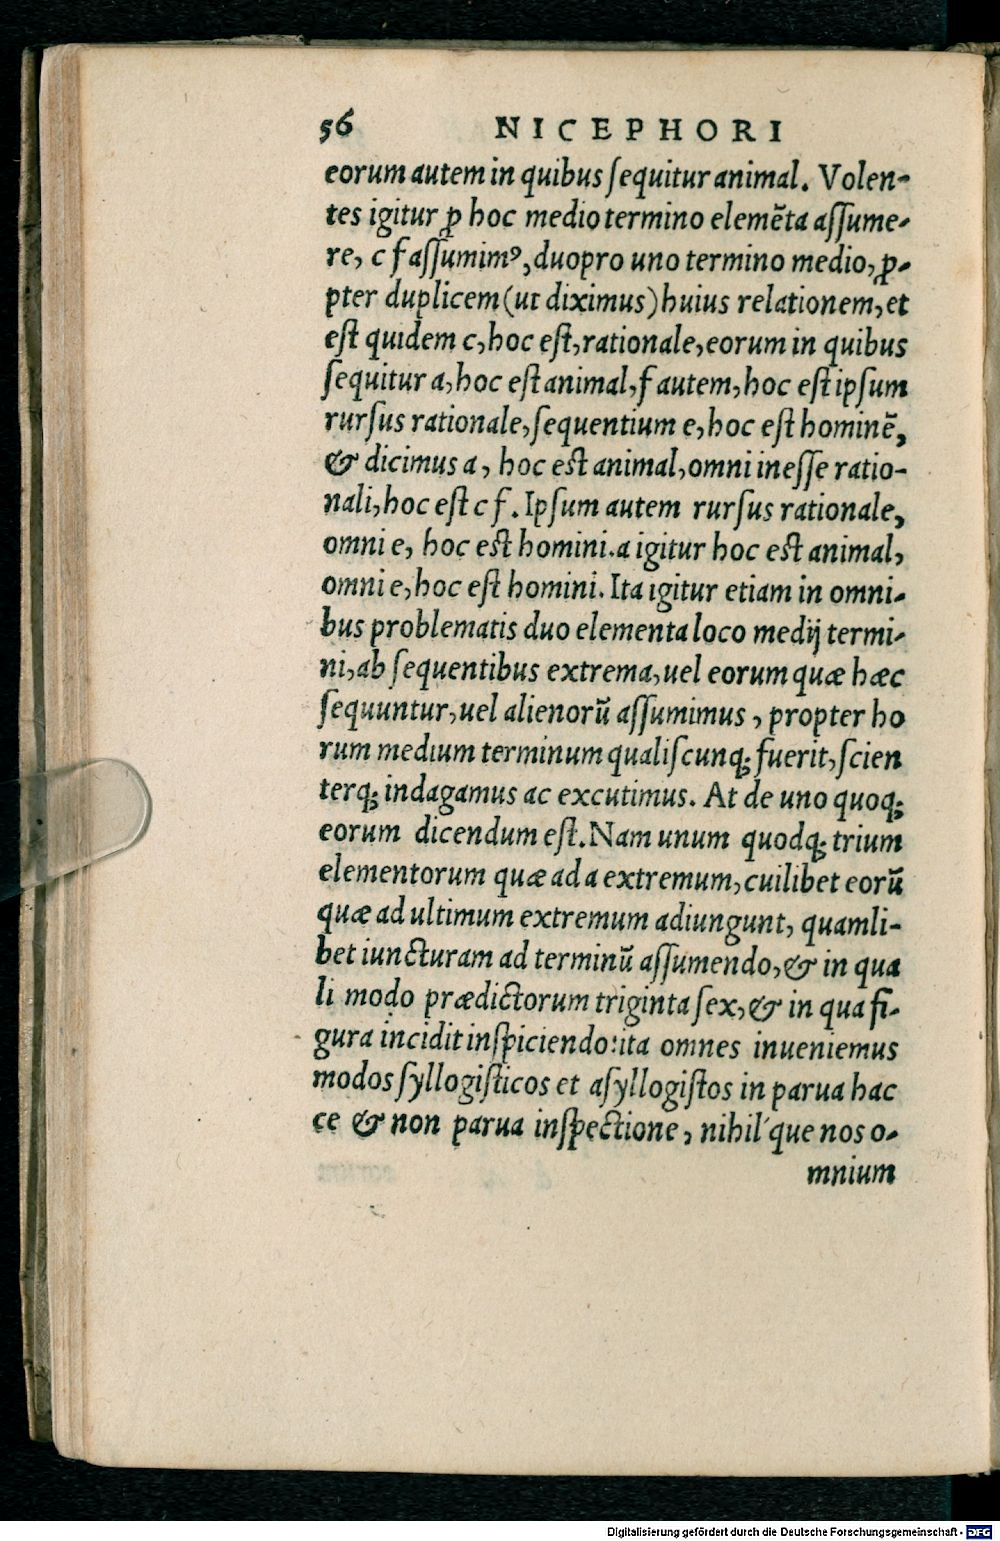 56 NICEPHORI
eorum autem in quibus ſequitur animal. Volen-
tes igitur ꝑ hoc medio termino elemẽta aſſume-
re, c f aſſumimꝰ, duo pro uno termino medio, ꝓ-
pter duplicem (ut diximus) huius relationem, et
eſt quidem c, hoc eſt, rationale, eorum in quibus
ſequitur a, hoc eſt animal, f autem, hoc eſt ipſum
rurſus rationale, ſequentium e, hoc eſt hominẽ,
& dicimus a, hoc est animal, omni ineſſe ratio-
nali, hoc eſt c f. Ipſum autem rurſus rationale,
omni e, hoc est homini. a igitur hoc est animal,
omni e, hoc eſt homini. Ita igitur etiam in omni-
bus problematis duo elementa loco medij termi-
ni, ab ſequentibus extrema, uel eorum quæ hæc
ſequuntur, uel alienorũ aſſumimus, propter ho
rum medium terminum qualiſcunq; fuerit, ſcien
terq; indagamus ac excutimus. At de uno quoq;
eorum dicendum eſt. Nam unum quodq; trium
elementorum quæ ad a extremum, cuilibet eorũ
quæ ad ultimum extremum adiungunt, quamli-
bet iuncturam ad terminũ aſſumendo, & in qua
li modo prædictorum triginta ſex, & in qua fi-
gura incidit inſpiciendo: ita omnes inueniemus
modos ſyllogiſticos et aſyllogiſtos in parua hac
ce & non parua inſpectione, nihil´que nos o-
mnium
Digitalisierung gefördert durch die Deutsche Forschungsgemeinschaft - DFG